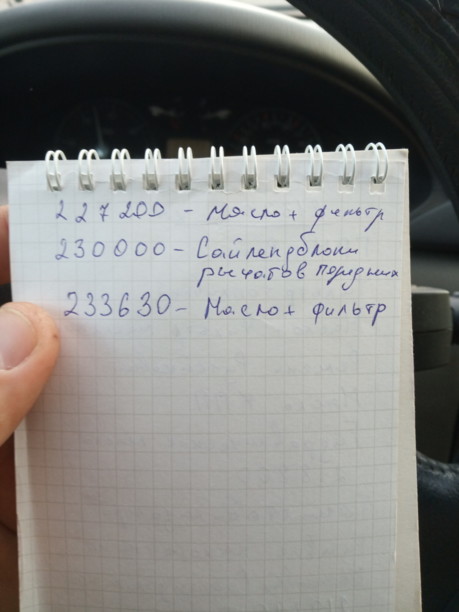 227200 - Масло + фильтр
230000 - Сайлендблоки
рычагов передних
233630 - Масло + фильтр